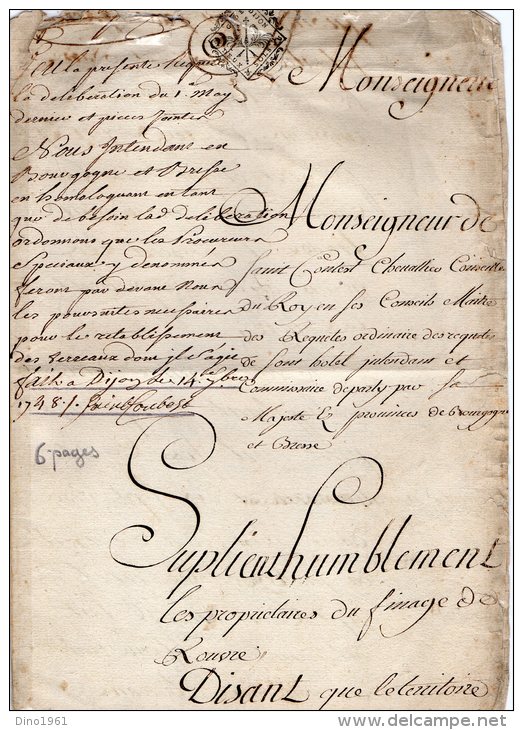 Monseigneur
Vu la presente requete
la deliberation du 1.er May
dernier et pieces jointes
Nous Intendant en
Bourgogne et Bresse
en homologuant en tant
que de besoin lad. deliberation
ordonnons que les Procureurs
Speciaux y denommes
feront par devant Nous
les poursuites necessaires
pour le retablissement
des terreaux dont il s'agit
fait a Dijon le 14. 7bre
1748. /.
6 pages
Monseigneur de
saint Contest Chevallier Conseiller
du Roy en ses Conseils Maitre
des Requetes ordinaire des requetes
de son hotel intendant et
Commissaire departy par sa
Majesté Es provinces de Bourgogne
et Bresse
Suplient humblement
les proprietaires du finage de
Rouvre
Disant que le territoire
Dino1961